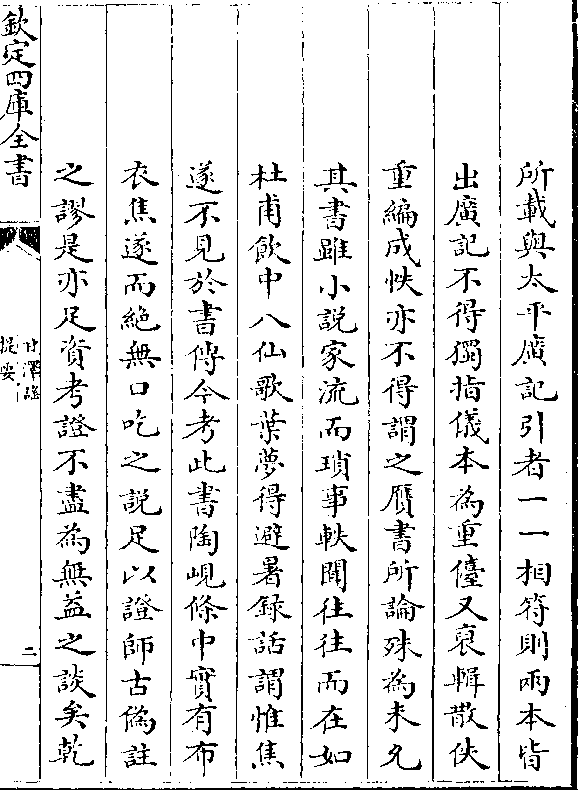 所載與太平廣記引者一一相符則兩本皆
出廣記不得獨指儀本為重儓又裒輯散佚
重編成帙亦不得謂之贋書所論殊為未允
其書雖小説家流而瑣事軼聞往往而在如
杜甫飲中八仙歌葉夢得避暑録話謂惟焦
遂不見於書傳今考此書陶峴條中實有布
衣焦遂而絶無口吃之説足以證師古偽註
之謬是亦足資考證不盡為無益之談矣乾
欽定四庫全書
甘澤謡
提要
二